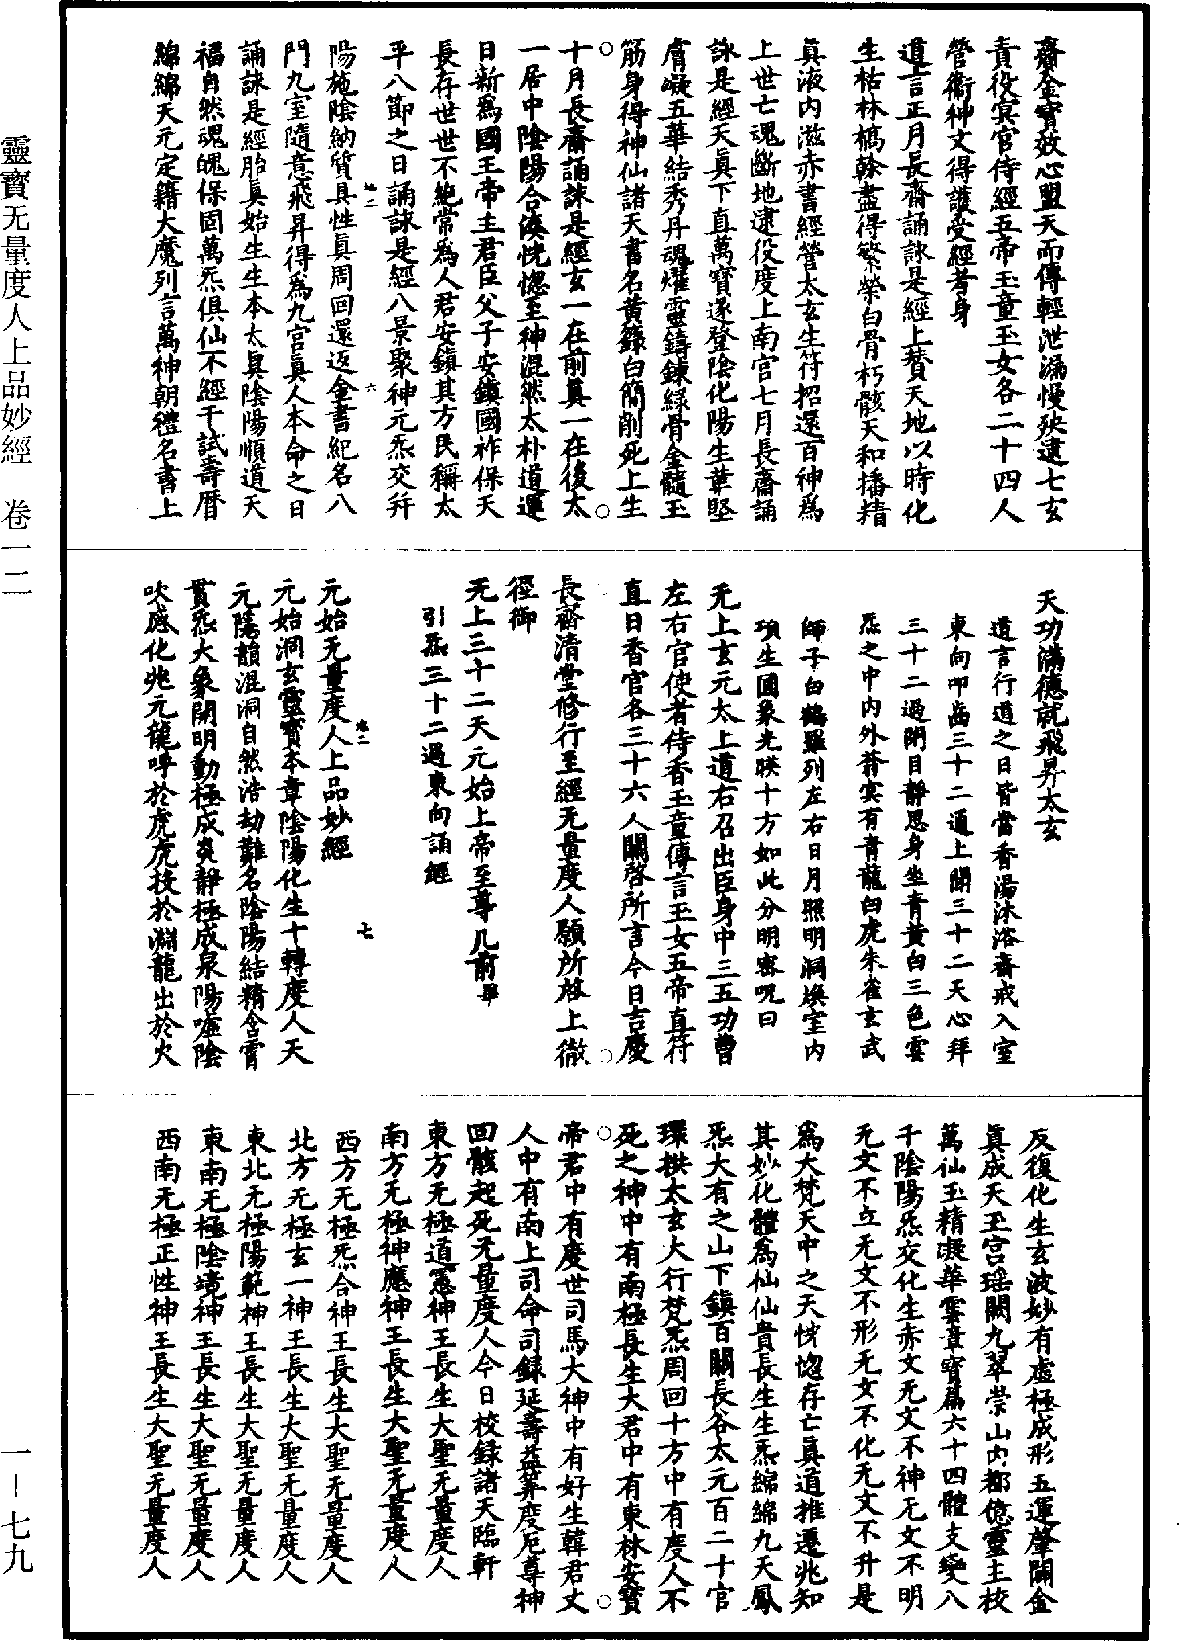 齋金寶效心盟天而傳輕泄漏慢殃逮七玄
責役冥官侍經五帝玉童玉女各二十四人
營衛神文得護受經者身
道言正月長齋誦詠是經上替天地以時化
生枯林槁榦盡得繁榮白骨朽骸天和播精
真液內滋赤書經營太玄生符招還百神為
上世亡魂斷地逮役度上南宮七月長齋誦
詠是經天真下直萬寶遂登陰化陽生華堅
膚凝五華結秀丹魂耀靈鑄鍊綠骨金髓玉
筋身得神仙諸天書名黃籙白簡削死上生
十月長齋誦詠是經玄一在前真一在後太
一居中陰陽合渙恍惚至神混然太朴道運
日新為國王帝主君臣父子安鎮國祚保天
長存世世不絕常為人君安鎮其方民稱太
平八節之日誦詠是經八景聚神元炁交并
卷二 六
陽施陰納質具性真周回還返金書紀名八
門九室隨意飛昇得為九宮真人本命之日
誦詠是經胎真始生生本太真陰陽順道天
福自然魂魄保固萬炁俱仙不經干試壽曆
綿綿天元定籍大魔列言萬神朝禮名書上
天功滿德就飛昇太玄
道言行道之日皆當香湯沐浴齋戒入室
東向叩齒三十二通上聞三十二天心拜
三十二過閉目靜思身坐青黃白三色雲
炁之中內外蓊冥有青龍白虎朱雀玄武
師子白鶴羅列左右日月照明洞煥室內
項生圓象光暎十方如此分明密呪曰
无上玄元太上道右召出臣身中三五功曹
左右官使者侍香玉童傳言玉女五帝直符
直日香官各三十六人關啓所言今日吉慶
長齋清堂修行至經无量度人願所啓上徹
徑御
无上三十二天元始上帝至尊几前畢
引炁三十二過東向誦經
卷二 七
元始无量度人上品妙經
元始洞玄靈寶本章陰陽化生十轉度人天
元陰韻混洞自然浩劫難名陰陽結精含霄
貫炁大象開明動極成炎靜極成泉陽噓陰
吹感化兆元龍呼於虎虎投於淵龍出於火
反復化生玄波妙有虛極成形五運肇開金
真成天玉宮瑤闕九翠崇山內都億靈主校
萬仙玉精凝華雲章寶篇六十四體支變八
千陰陽炁交化生赤文无文不神无文不明
无文不立无文不形无文不化无文不升是
為大梵天中之天恍惚存亡真道推遷兆知
其妙化體為仙仙貴長生生炁綿綿九天鳳
炁大有之山下鎮百關長谷太元百二十官
環拱太玄大行梵炁周回十方中有度人不
死之神中有南極長生大君中有東林安寶
帝君中有度世司馬大神中有好生韓君丈
人中有南上司命司錄延壽益算度厄尊神
回骸起死无量度人今日校錄諸天臨軒
東方无極道憲神王長生大聖无量度人
南方无極神應神王長生大聖无量度人
西方无極炁合神王長生大聖无量度人
北方无極玄一神王長生大聖无量度人
東北无極陽範神王長生大聖无量度人
東南无極陰境神王長生大聖无量度人
西南无極正性神王長生大聖无量度人
靈寶无量度人上品妙經 卷一二
一—七九